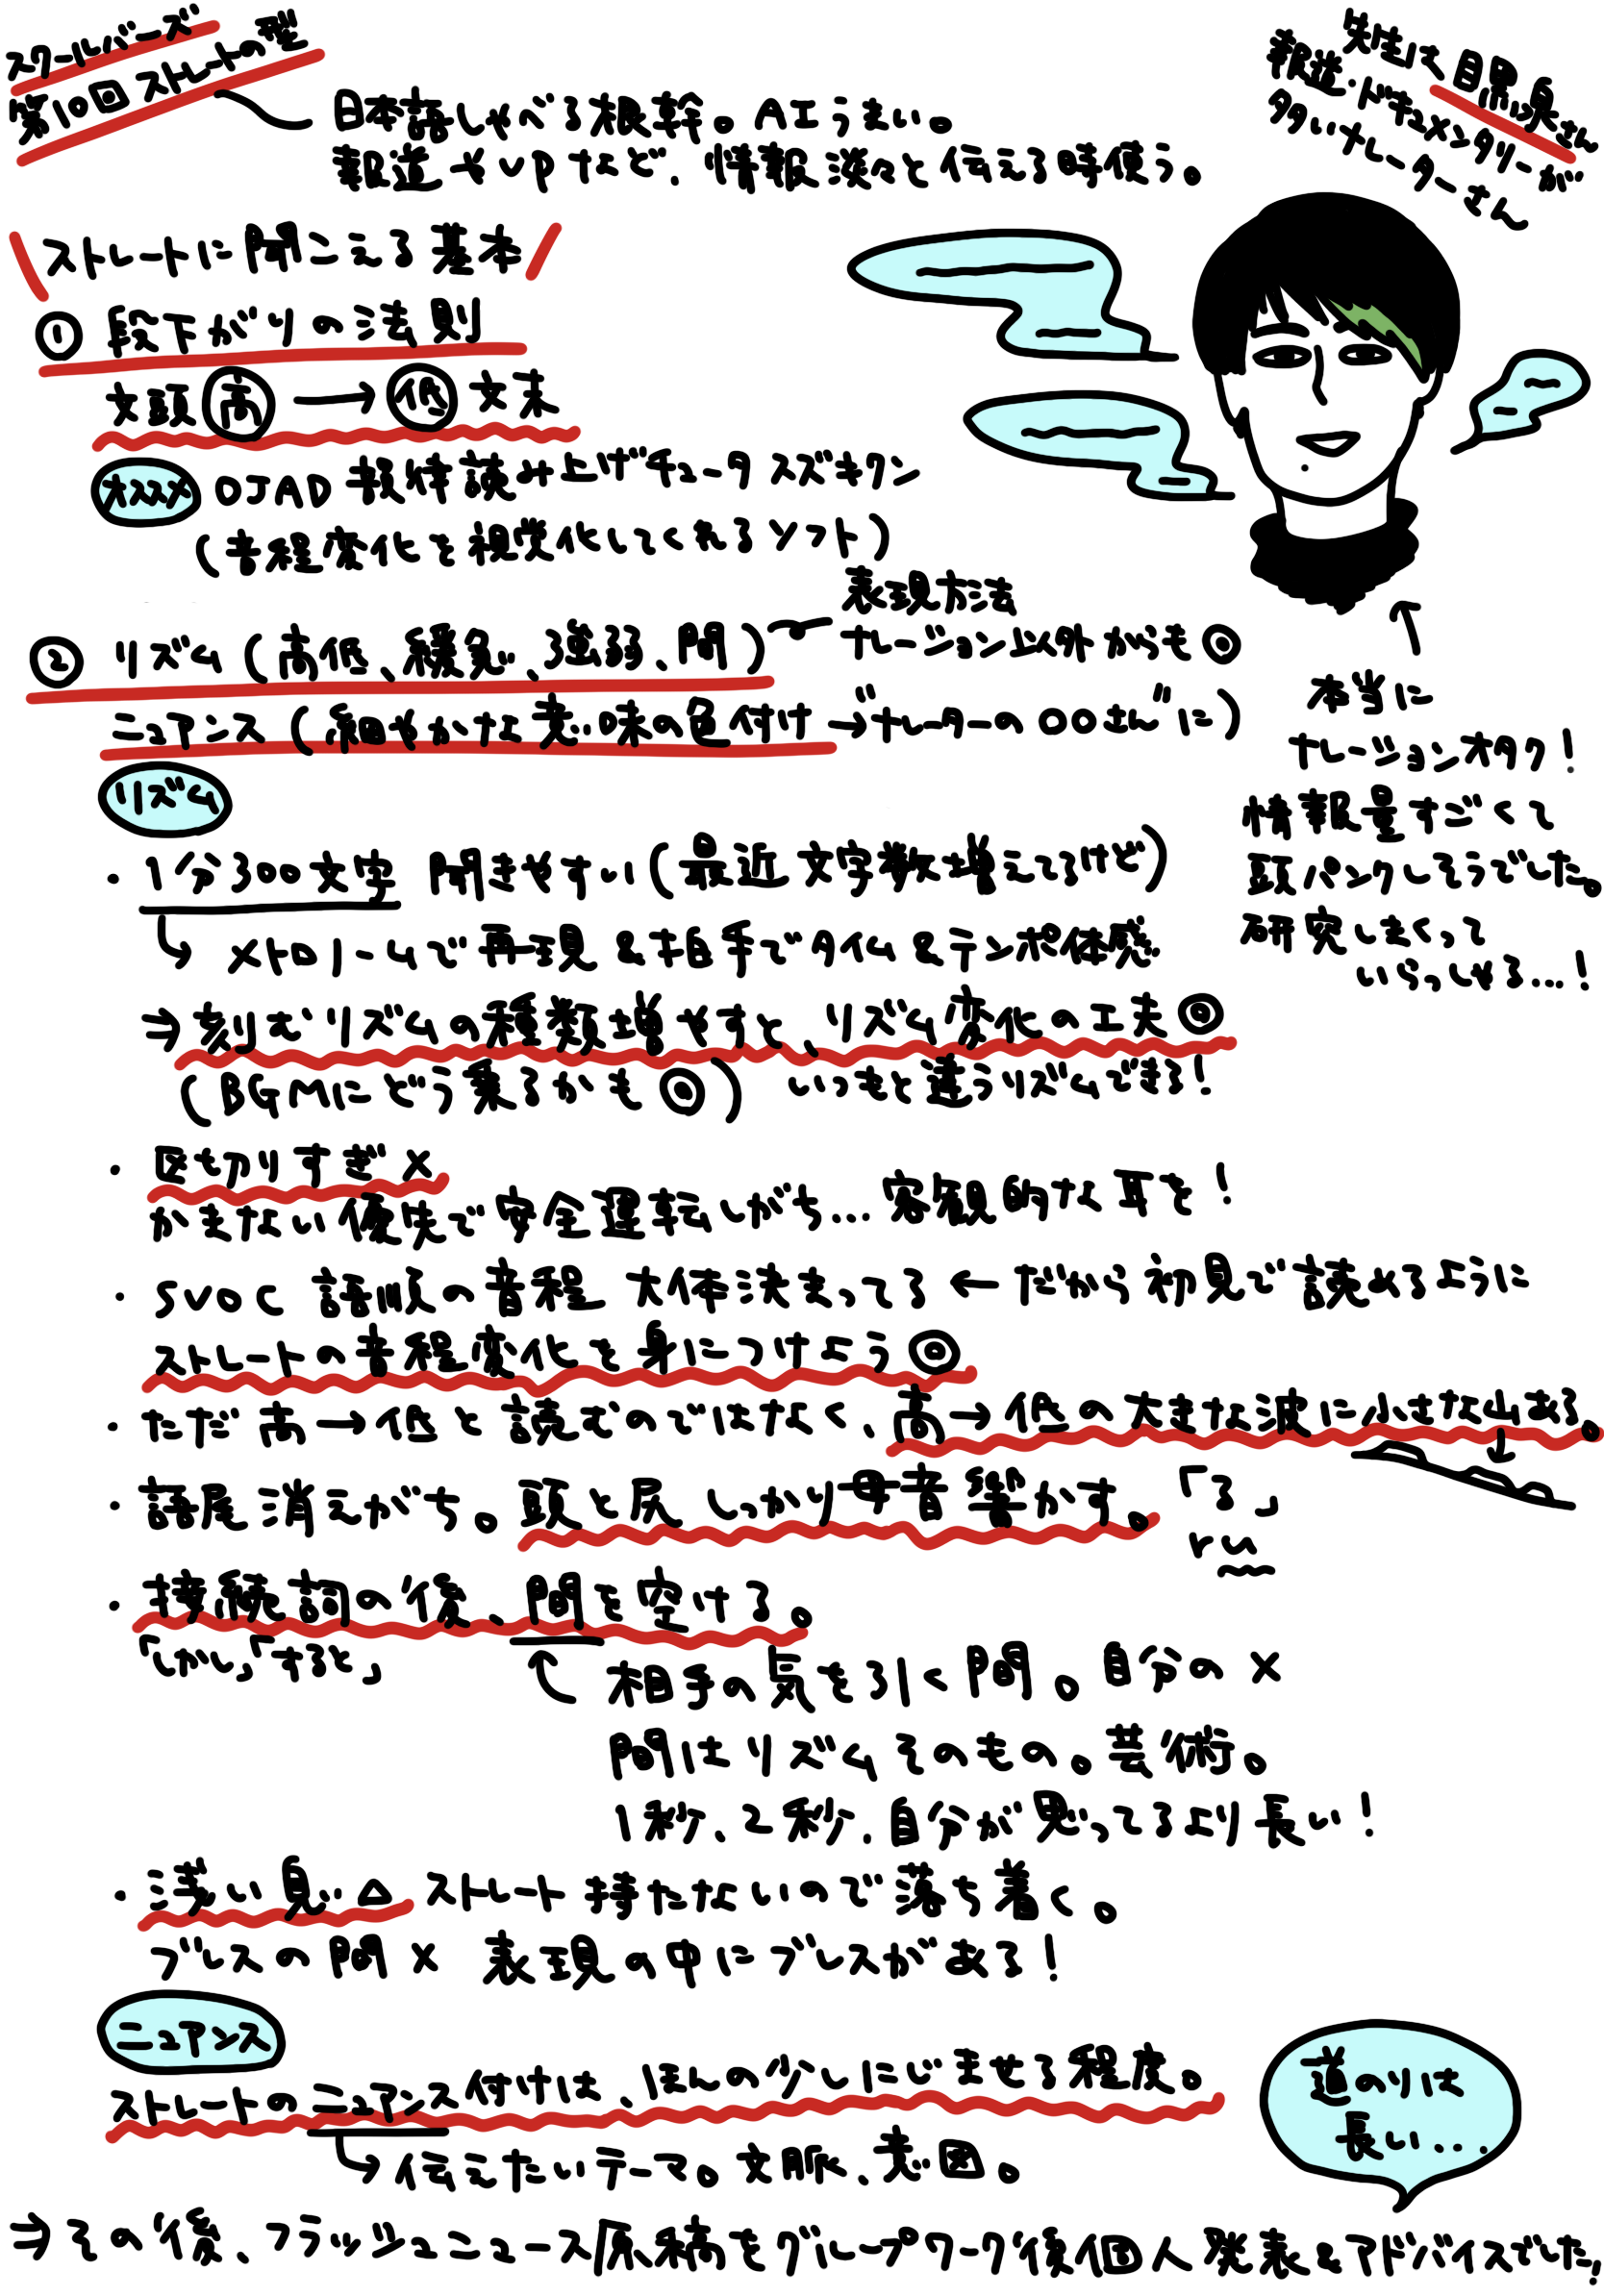 スクールバーズ
第10回 ストレートの型
日本語しゃべる根幹。AIうまい。
報道やVPなど、情報淡々と伝える時使う。
先生は目黒泉さん
報道・ドキュメンタリーが
多いナレーターさん
ストレートに聞こえる基本
① 段下がりの法則
文頭 高 → 低 文末
オススメ OJAD 韻律読み上げチュータ スズキクン
(音程変化を視覚化してくれるソフト)
② リズム(高低、緩急、強弱、間)
表現方法
ナレーション以外からも◎
ニュアンス(細やかな意味の色付け→"ナレーターの〇〇さん"に)
本当に
ナレーションオタク!
情報量すごくて
頭パンクしそうでした。
研究しまくって
いらっしゃる…!
リズム
・1分300文字 聞きやすい(最近文字数増えてるけど)
↳ メトロノームで再現&拍手でタイム&テンポ体感
⇒刻むリズムの種類増やすと、リズム変化の工夫◎
(BGMにどう乗るかも◎) いつもと違うリズムできる!
・区切りすぎ×
かまない優先で安全運転しがち…客観的な耳を!
・SVOC 語順の音程 大体決まってる ← だから初見で読めるように
ストレートの音程変化を身につけよう◎
・ただ高→低と読むのではなく、高→低の大きな波に小さな山ある。
・語尾消えがち。頭と尻しっかり母音響かす。「る」
ru
・接続詞の後、間を空ける。
「しかし」「すると」
相手の気を引く間。自分の×
間はリズムそのもの。芸術。
1秒、2秒、自分が思ってるより長い!
・浅い息△ ストレート持たないので落ち着く。
ブレスの間× 表現の中にブレスがある!
ニュアンス
ストレートのニュアンス付けは、ほんの少しにじませる程度。
↳伝えたいテーマ。文脈、意図。
道のりは
長い…
⇒その後、フラッシュニュース原稿をグループワーク後個人発表&アドバイスでした!